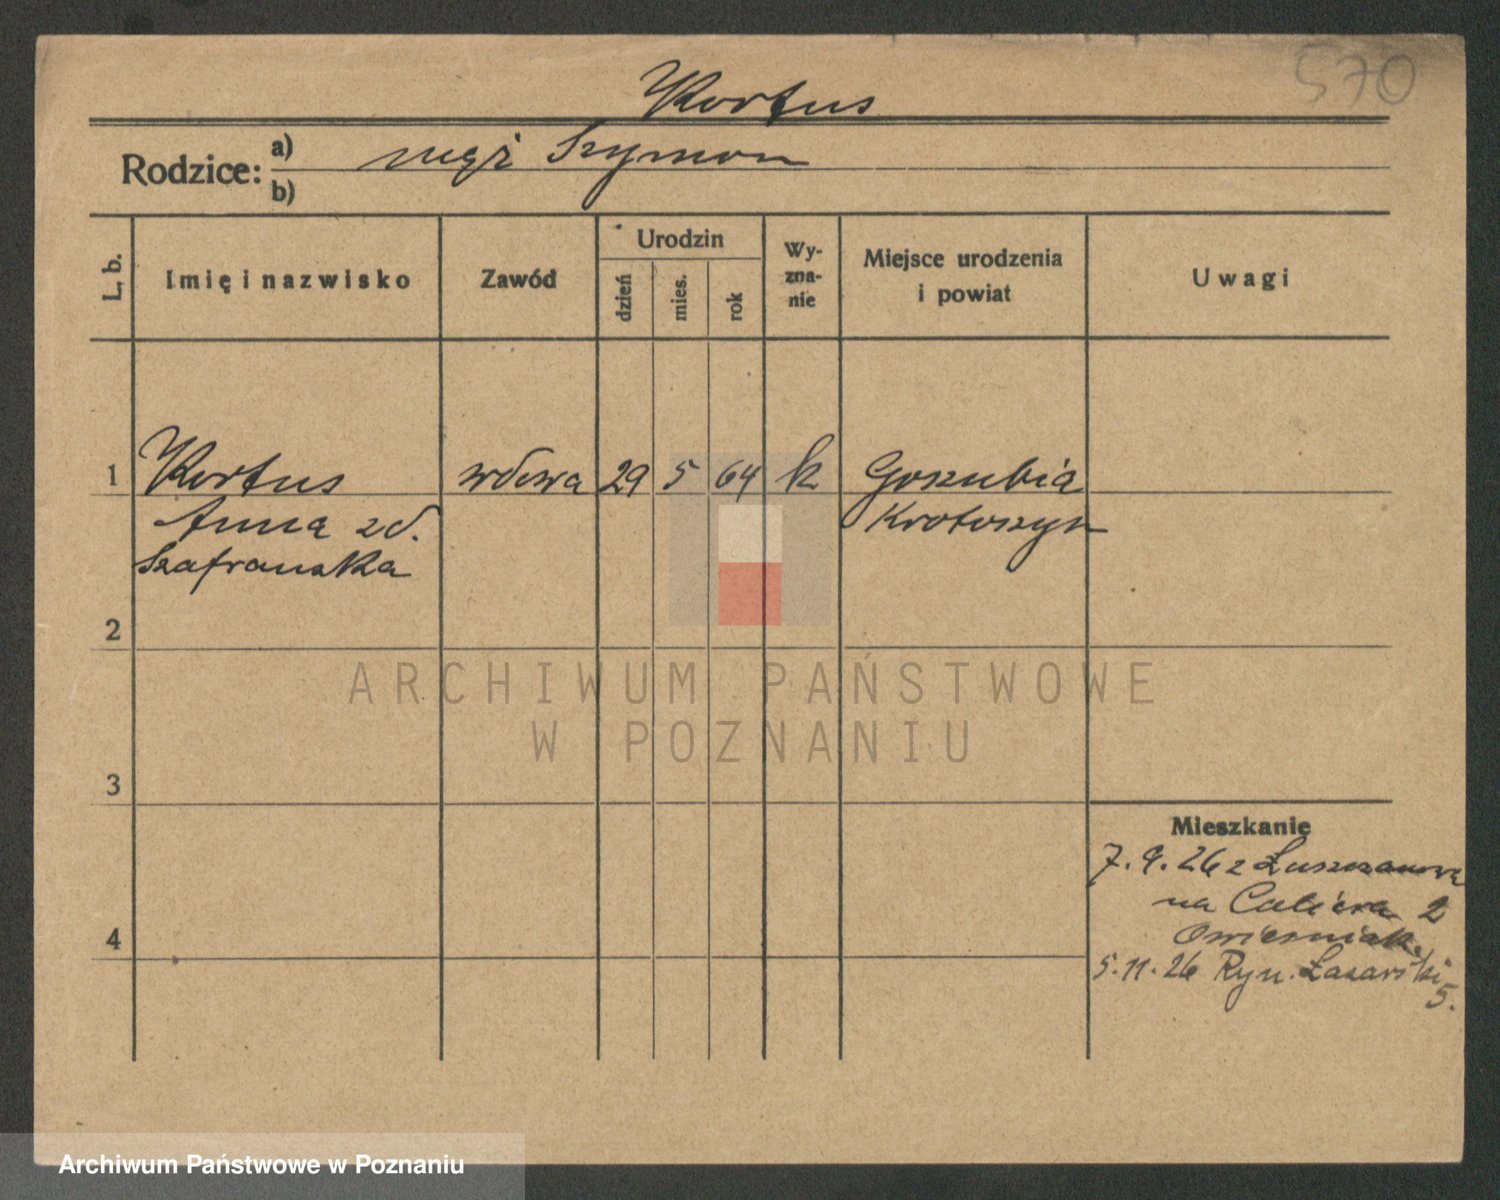 570
Kortus
Rodzice: a) mąż Szymon
b)
L. b.
Imię i nazwisko
Zawód
Urodzin
dzień
mies.
rok
Wy-
zna-
nie
Miejsce urodzenia
i powiat
Uwagi
1 Kortus wdowa 29 5 64 k
Anna zd. Krotoszyn
Szafranska
2
3
4
Mieszkanie
7. 9. 26 z
na 2
5. 11. 26 Ryn. Łazarski
5.
ARCHIWUM PAŃSTWOWE
W POZNANIU
Archiwum Państwowe w Poznaniu